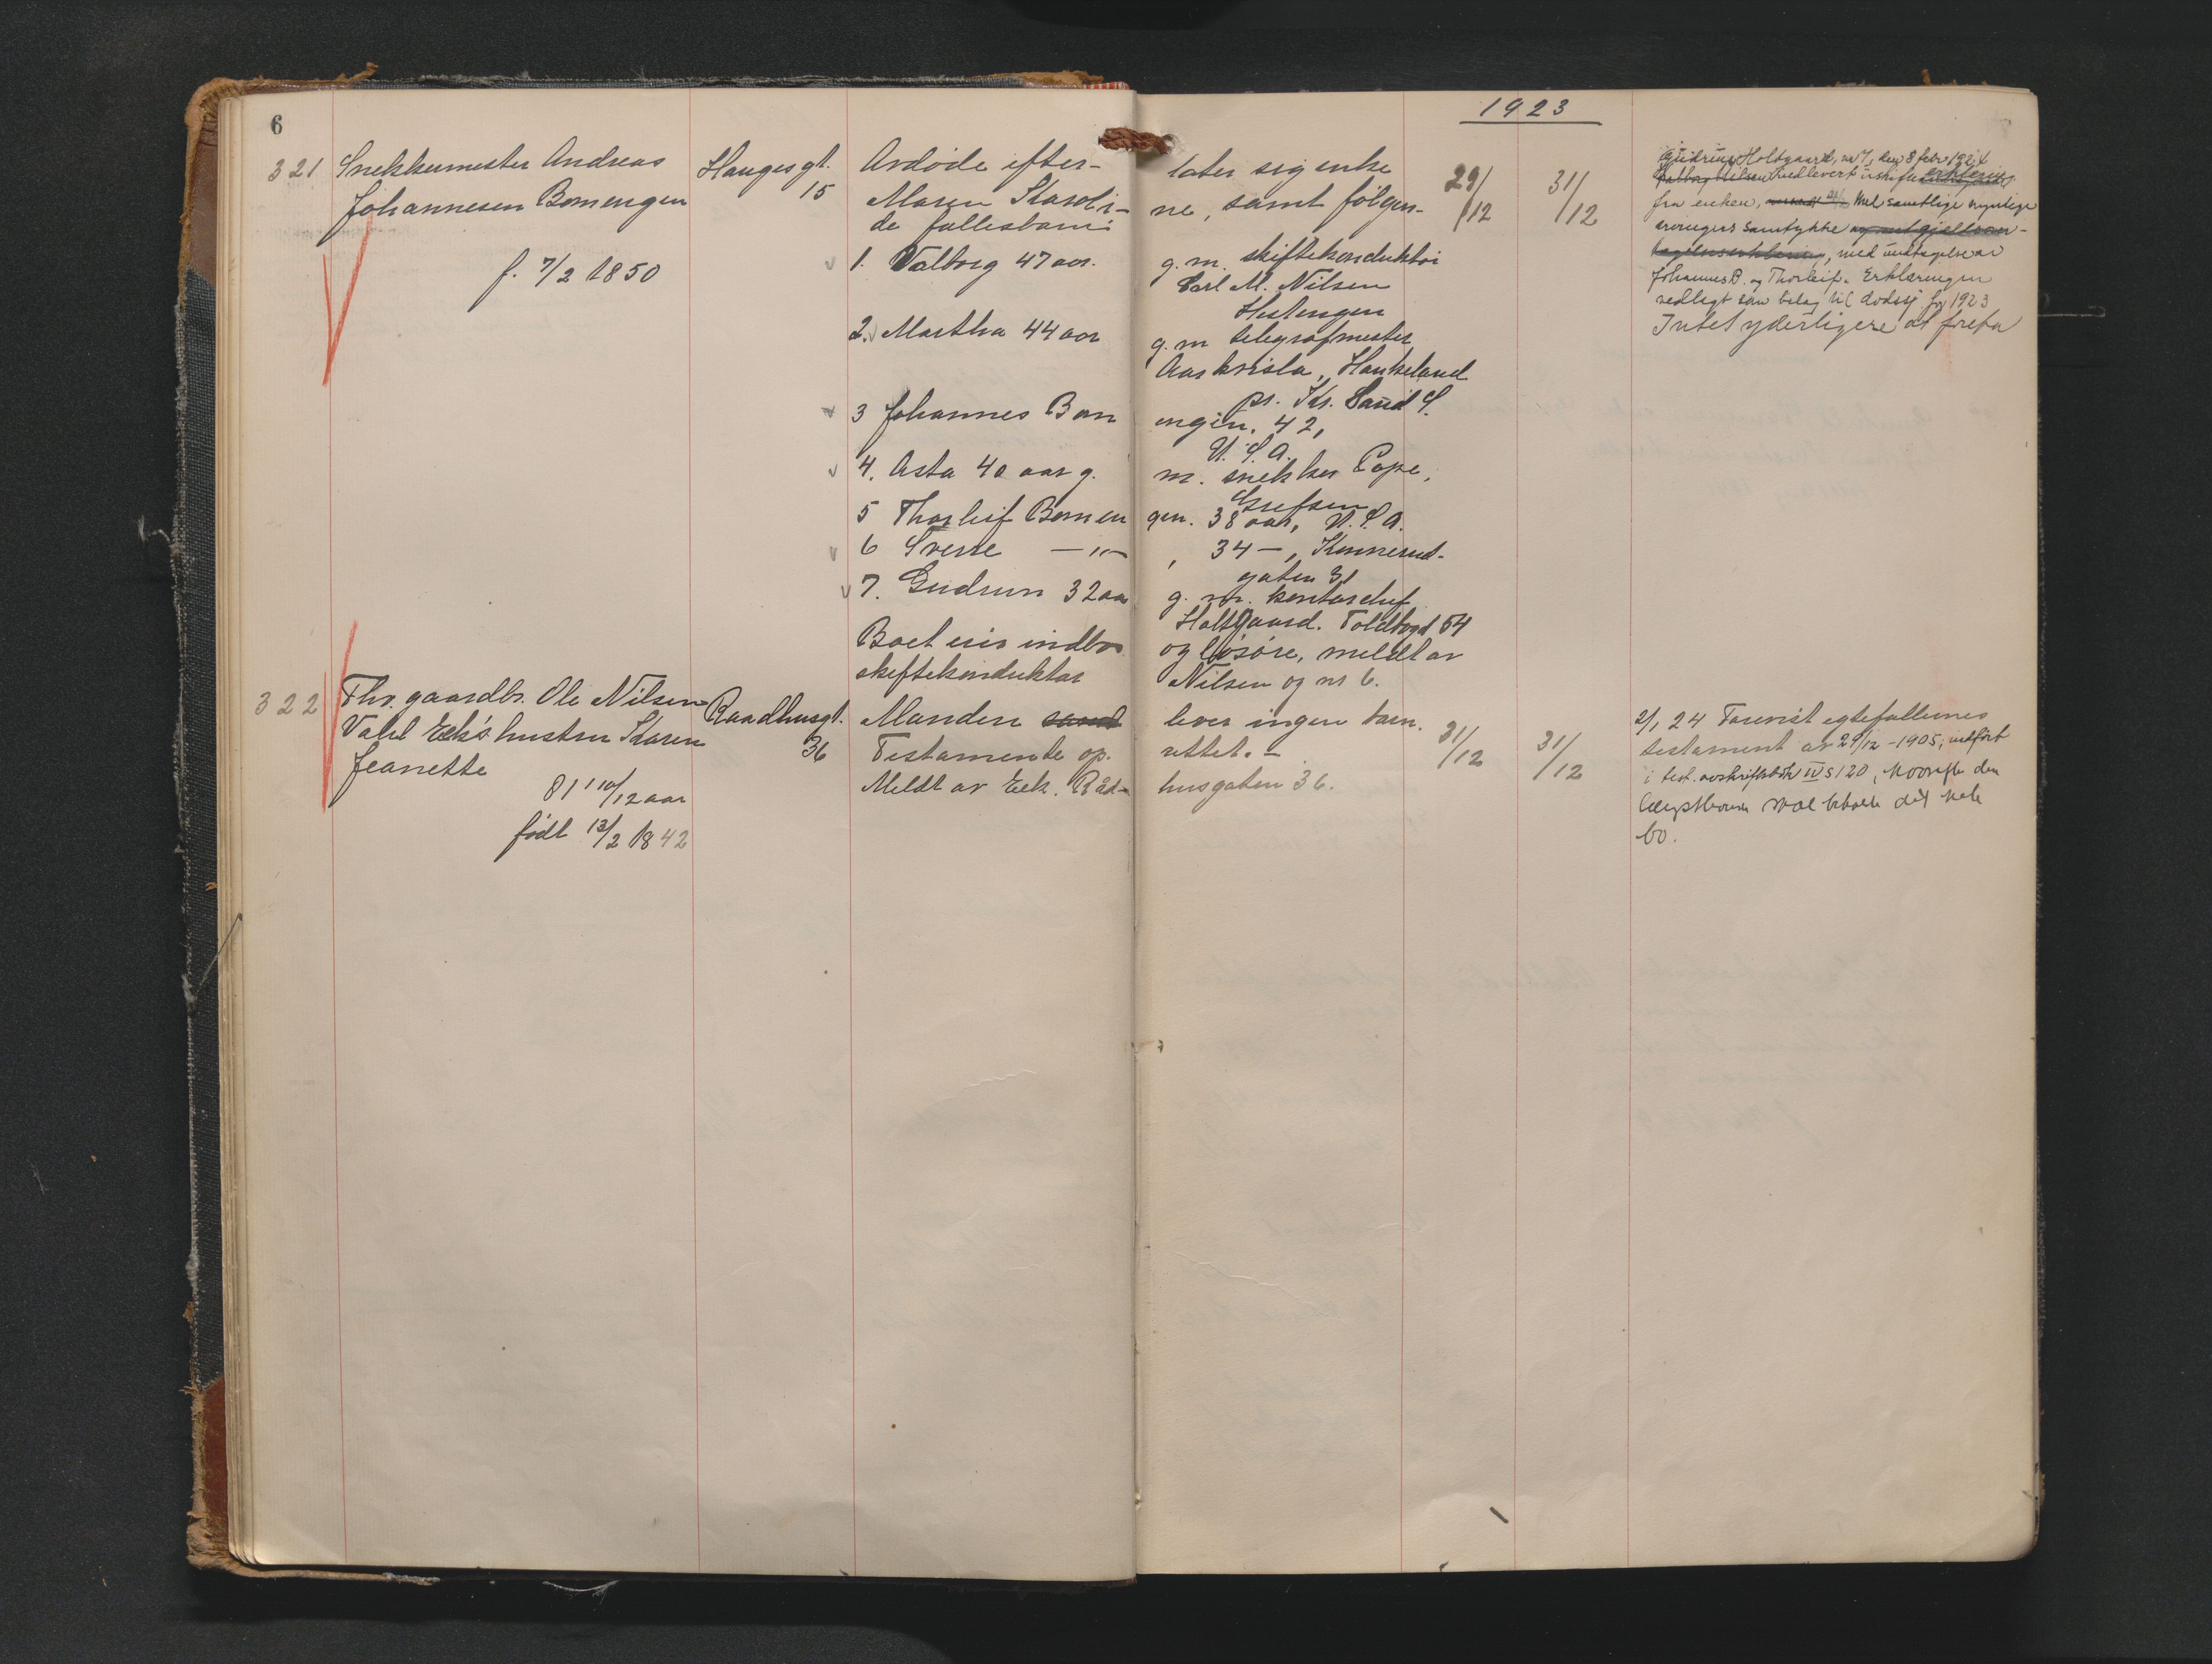 6
1923
321 Snekkermester Andreas
Johannesen Bomengen
f. 7/2 1850
Haugesgt.
15
Avdøde efter- later sig enke
Maren Karoli- ne, samt følgen-
de fællesbarn:
1. Valborg 47 aar. g. m. skiftekonduktør
Carl M. Nilsen
Hestengen
2. Martha 44 aar g. m telegrafmester
Aaskvisla, Hankeland
pr. Kr. Sand S.
3 Johannes Bom engen. 42,
U. S. A.
4. Asta 40 aar g. m. snekker Pope,
Grefsen
5 Thorleif Bomen gen. 38 aar, U. S. A.
6 Sverre —"— , 34 —, Konnerud-
gaten 31
7. Gudrun 32 aar g. m. kontorchef
Holtgaard. Toldbodg 54
Boet eier indbo og løsøre, meldt av
skiftekonduktør Nilsen og nr 6.
29/12
31/12
Gudrun Holtgaard, nr 7, den 8 febr 1924
Valborg Nilsen nedlevert uskifteerklæring
fra enken, Med samtlige myndige
arvingers samtykke
, med undtagelse av
Johannes B. og Thorleif. Erklæringen
vedlagt som bilag til dødssj. for 1923
Intet yderligere at foreta
322 Fhv. gaardbr. Ole Nilsen
Vahl Eek's hustru Karen
Jeanette
81 10/12 aar
født 13/2 1842
Raadhusgt.
36
Manden samt lever ingen barn.
Testamente op- rettet. —
Meldt av Eek. Råd- husgaten 36.
31/12
31/12
2/1 24 Forevist egtefællernes
testament av 29/12 - 1905, indført
i test. avskriftsbok IV s 120, hvorefter den
længstlevende skal beholde det hele
bo.